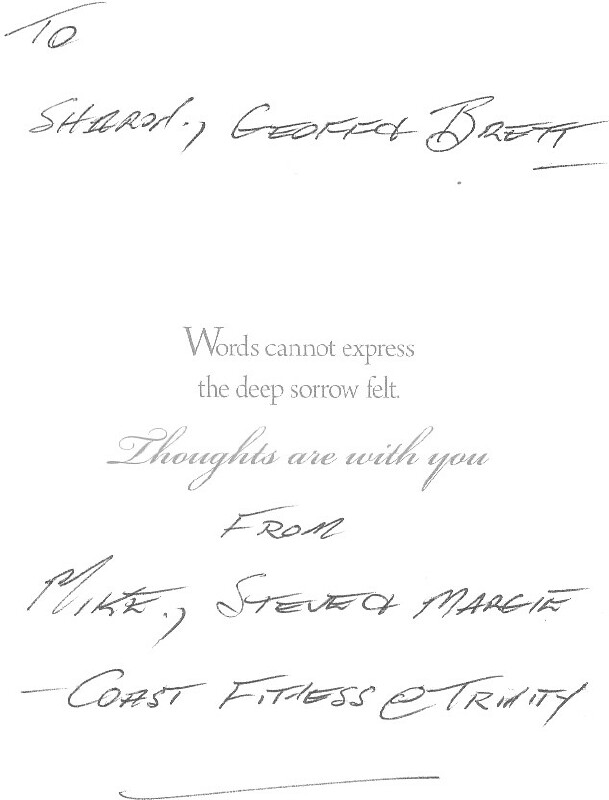 To
SHARON., GEOFF & BRETT
Words cannot express
the deep sorrow felt.
Thoughts are with you
FROM
MIKE., STEVE & MARGIE
— COAST FITNESS @ TRINITY